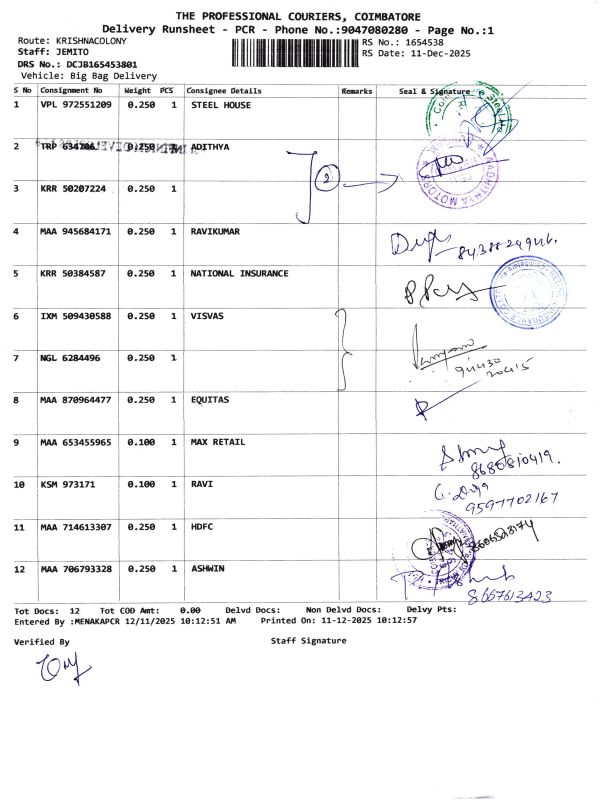 THE PROFESSIONAL COURIERS, COIMBATORE
Delivery Runsheet - PCR - Phone No.:9047080280 - Page No.:1
Route: KRISHNACOLONY
RS No.: 1654538
Staff: JEMITO
RS Date: 11-Dec-2025
DRS No.: DCJB165453801
Vehicle: Big Bag Delivery
S No Consignment No Weight PCS Consignee Details Remarks Seal & Signature
1 VPL 972551209 0.250 1 STEEL HOUSE
2 TRP 0.250 ADITHYA
2
3 KRR 50207224 0.250 1
4 MAA 945684171 0.250 1 RAVIKUMAR
5 KRR 50384587 0.250 1 NATIONAL INSURANCE
6 IXM 509430588 0.250 1 VISVAS
7 NGL 6284496 0.250 1
8 MAA 870964477 0.250 1 EQUITAS
9 MAA 653455965 0.100 1 MAX RETAIL
10 KSM 973171 0.100 1 RAVI
9597702167
11 MAA 714613307 0.250 1 HDFC
12 MAA 706793328 0.250 1 ASHWIN
8667613423
Tot Docs: 12 Tot COD Amt: 0.00 Delvd Docs: Non Delvd Docs: Delvy Pts:
Entered By :MENAKAPCR 12/11/2025 10:12:51 AM Printed On: 11-12-2025 10:12:57
Verified By Staff Signature